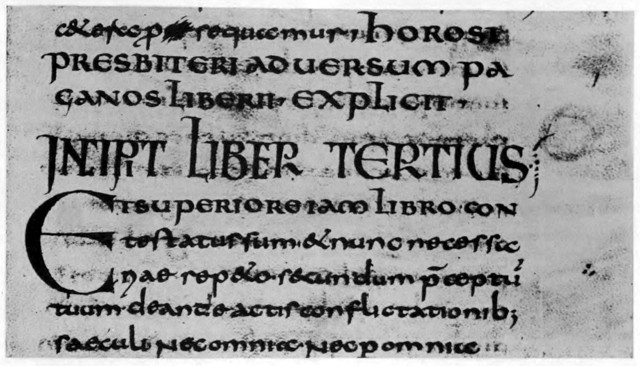 sequamur · HOROSI
PRESBITERI ADUERSUM PA
GANOS LIBER II· EXPLICIT ·
INCIPIT LIBER TERTIUS;
ETSUPERIORE IAM LIBRO CON
testatus sum· & nunc necessa
riae rep&o· secundum p̄ceptū
tuum· de ante actis conflictationib;
saeculi nec omnia· nec p omnia